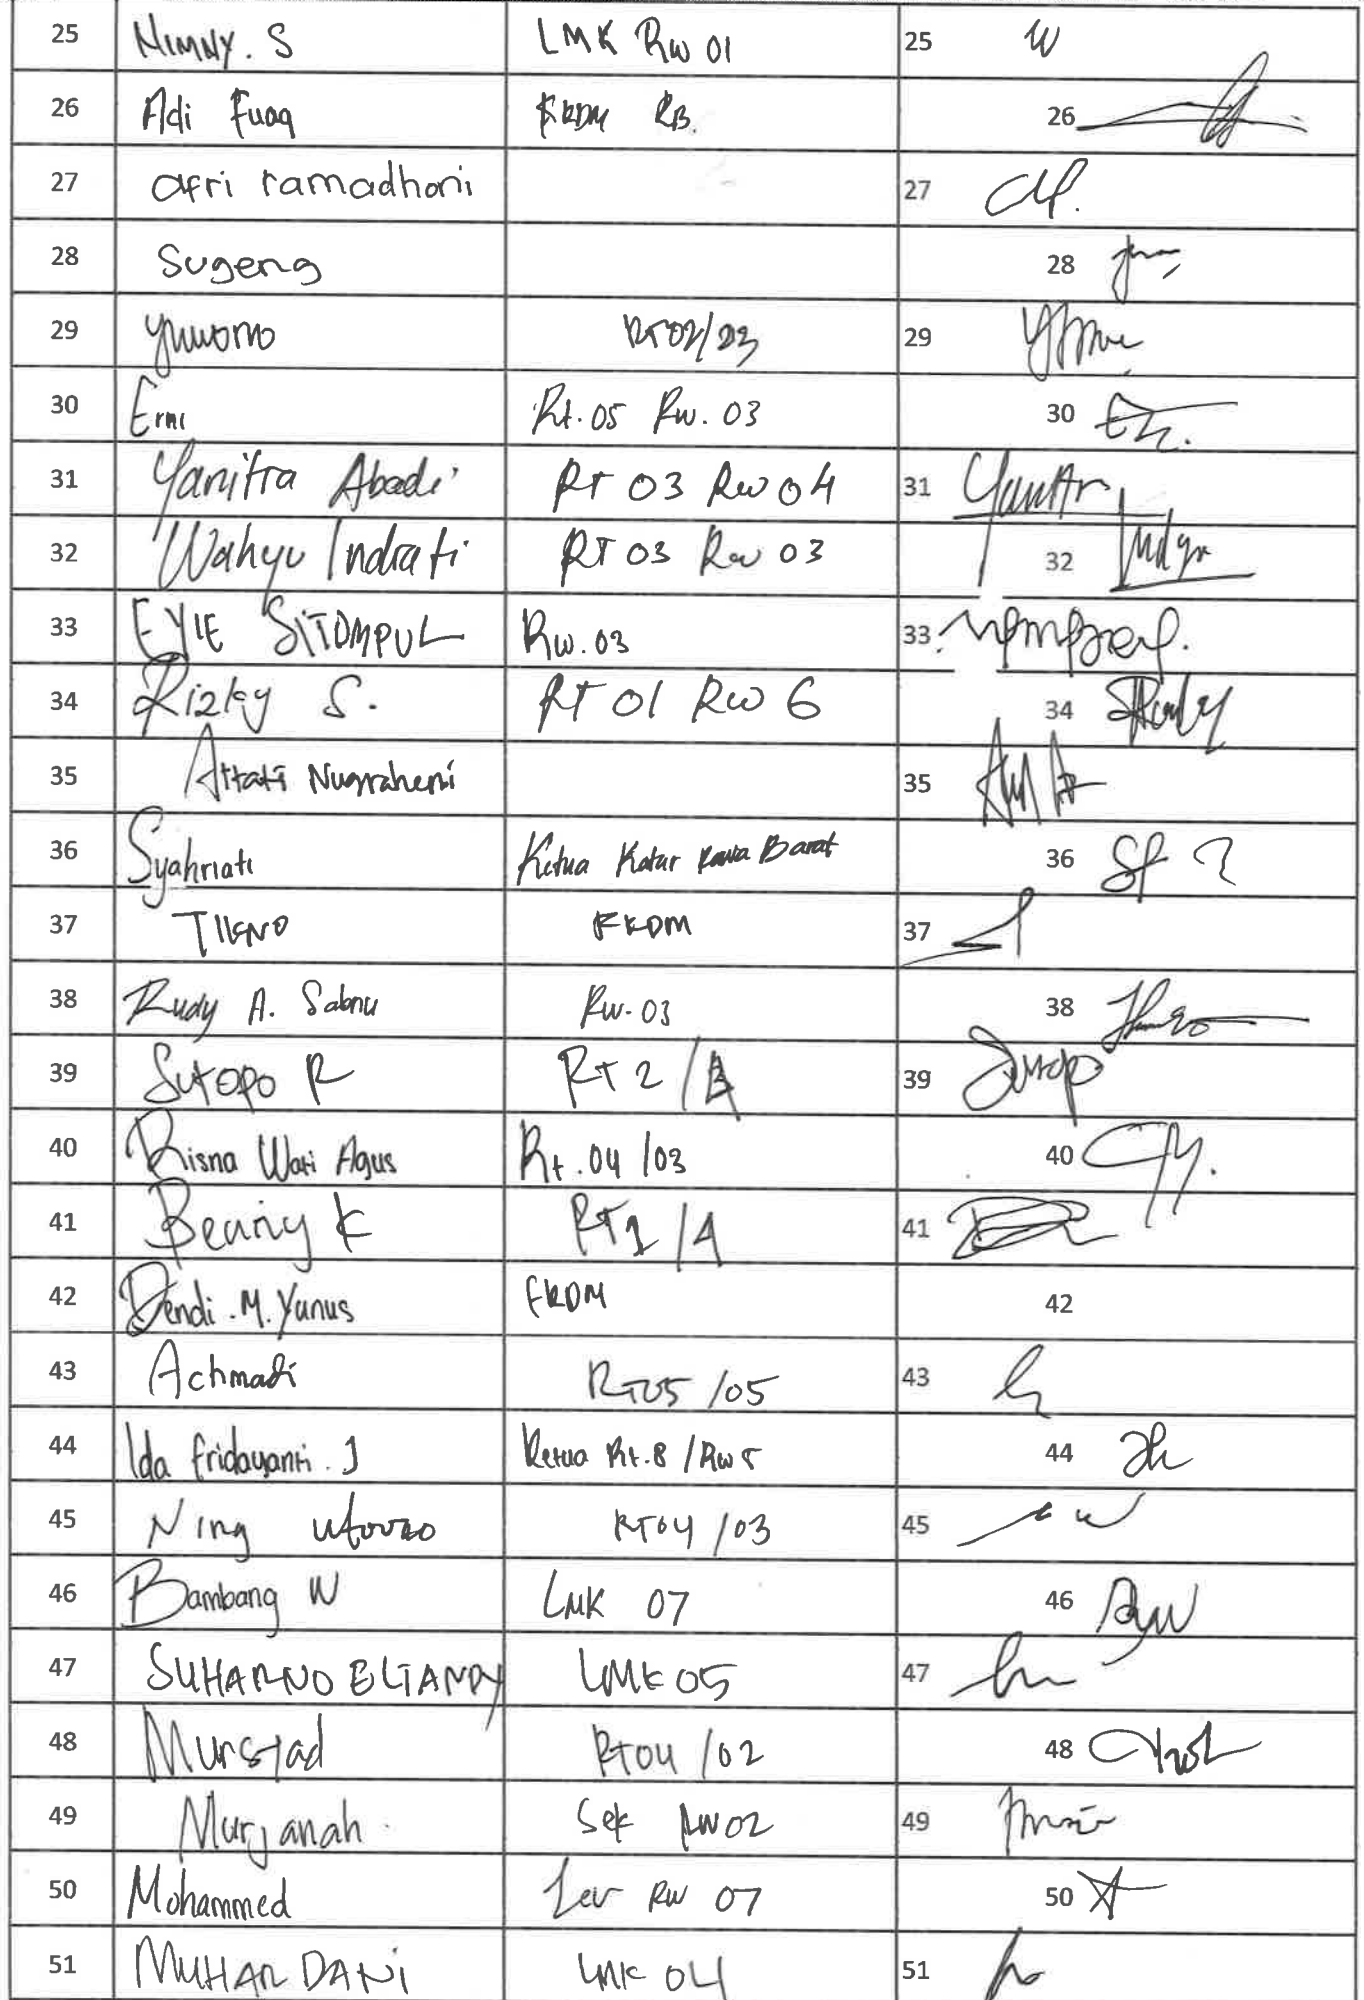 25 NIMNY. S LMK Rw 01 25
26 Adi Fuaq FKDM RB. 26
27 afri ramadhani 27
28 Sugeng 28
29 Yuwono RT02/23 29
30 Erni Rt.05 Rw.03 30
31 Yanitra Abadi RT 03 Rw 04 31
32 Wahyu Indrati RT 03 Rw 03 32
33 EYIE SITOMPUL Rw.03 33
34 Rizky S. RT 01 Rw 6 34
35 Nugraheni 35
36 Syahriati Ketua Katar Rawa Barat 36
37 FKDM 37
38 Rudy A. Rw.03 38
39 Sutopo R RT 2 / 39
40 Risna Wati Agus Rt.04/03 40
41 Benny K RT1/4 41
42 Dendi.M.Yunus FKDM 42
43 Achmadi RT05/05 43
44 Ida Fridayanti. J Ketua Rt.8/Rw5 44
45 Ning RT04/03 45
46 Bambang W LMK 07 46
47 SUHARNO ELTANDY LMK 05 47
48 Mursyad RT04/02 48
49 Murjanah Sek RW02 49
50 Mohammed RW 07 50
51 MUHAR DANI LMK 04 51